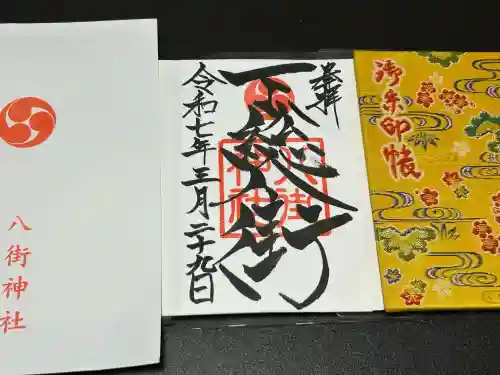 八街神社
奉拝
下総八街
八街神社
令和七年三月二十九日
御朱印帳